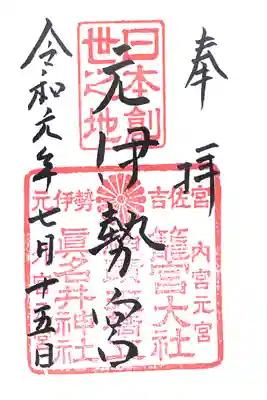 奉拝
日本創
世之地
元伊勢宮
令和元年七月十五日
元伊勢 吉佐宮
内宮元宮
籠宮大社
眞名井神社